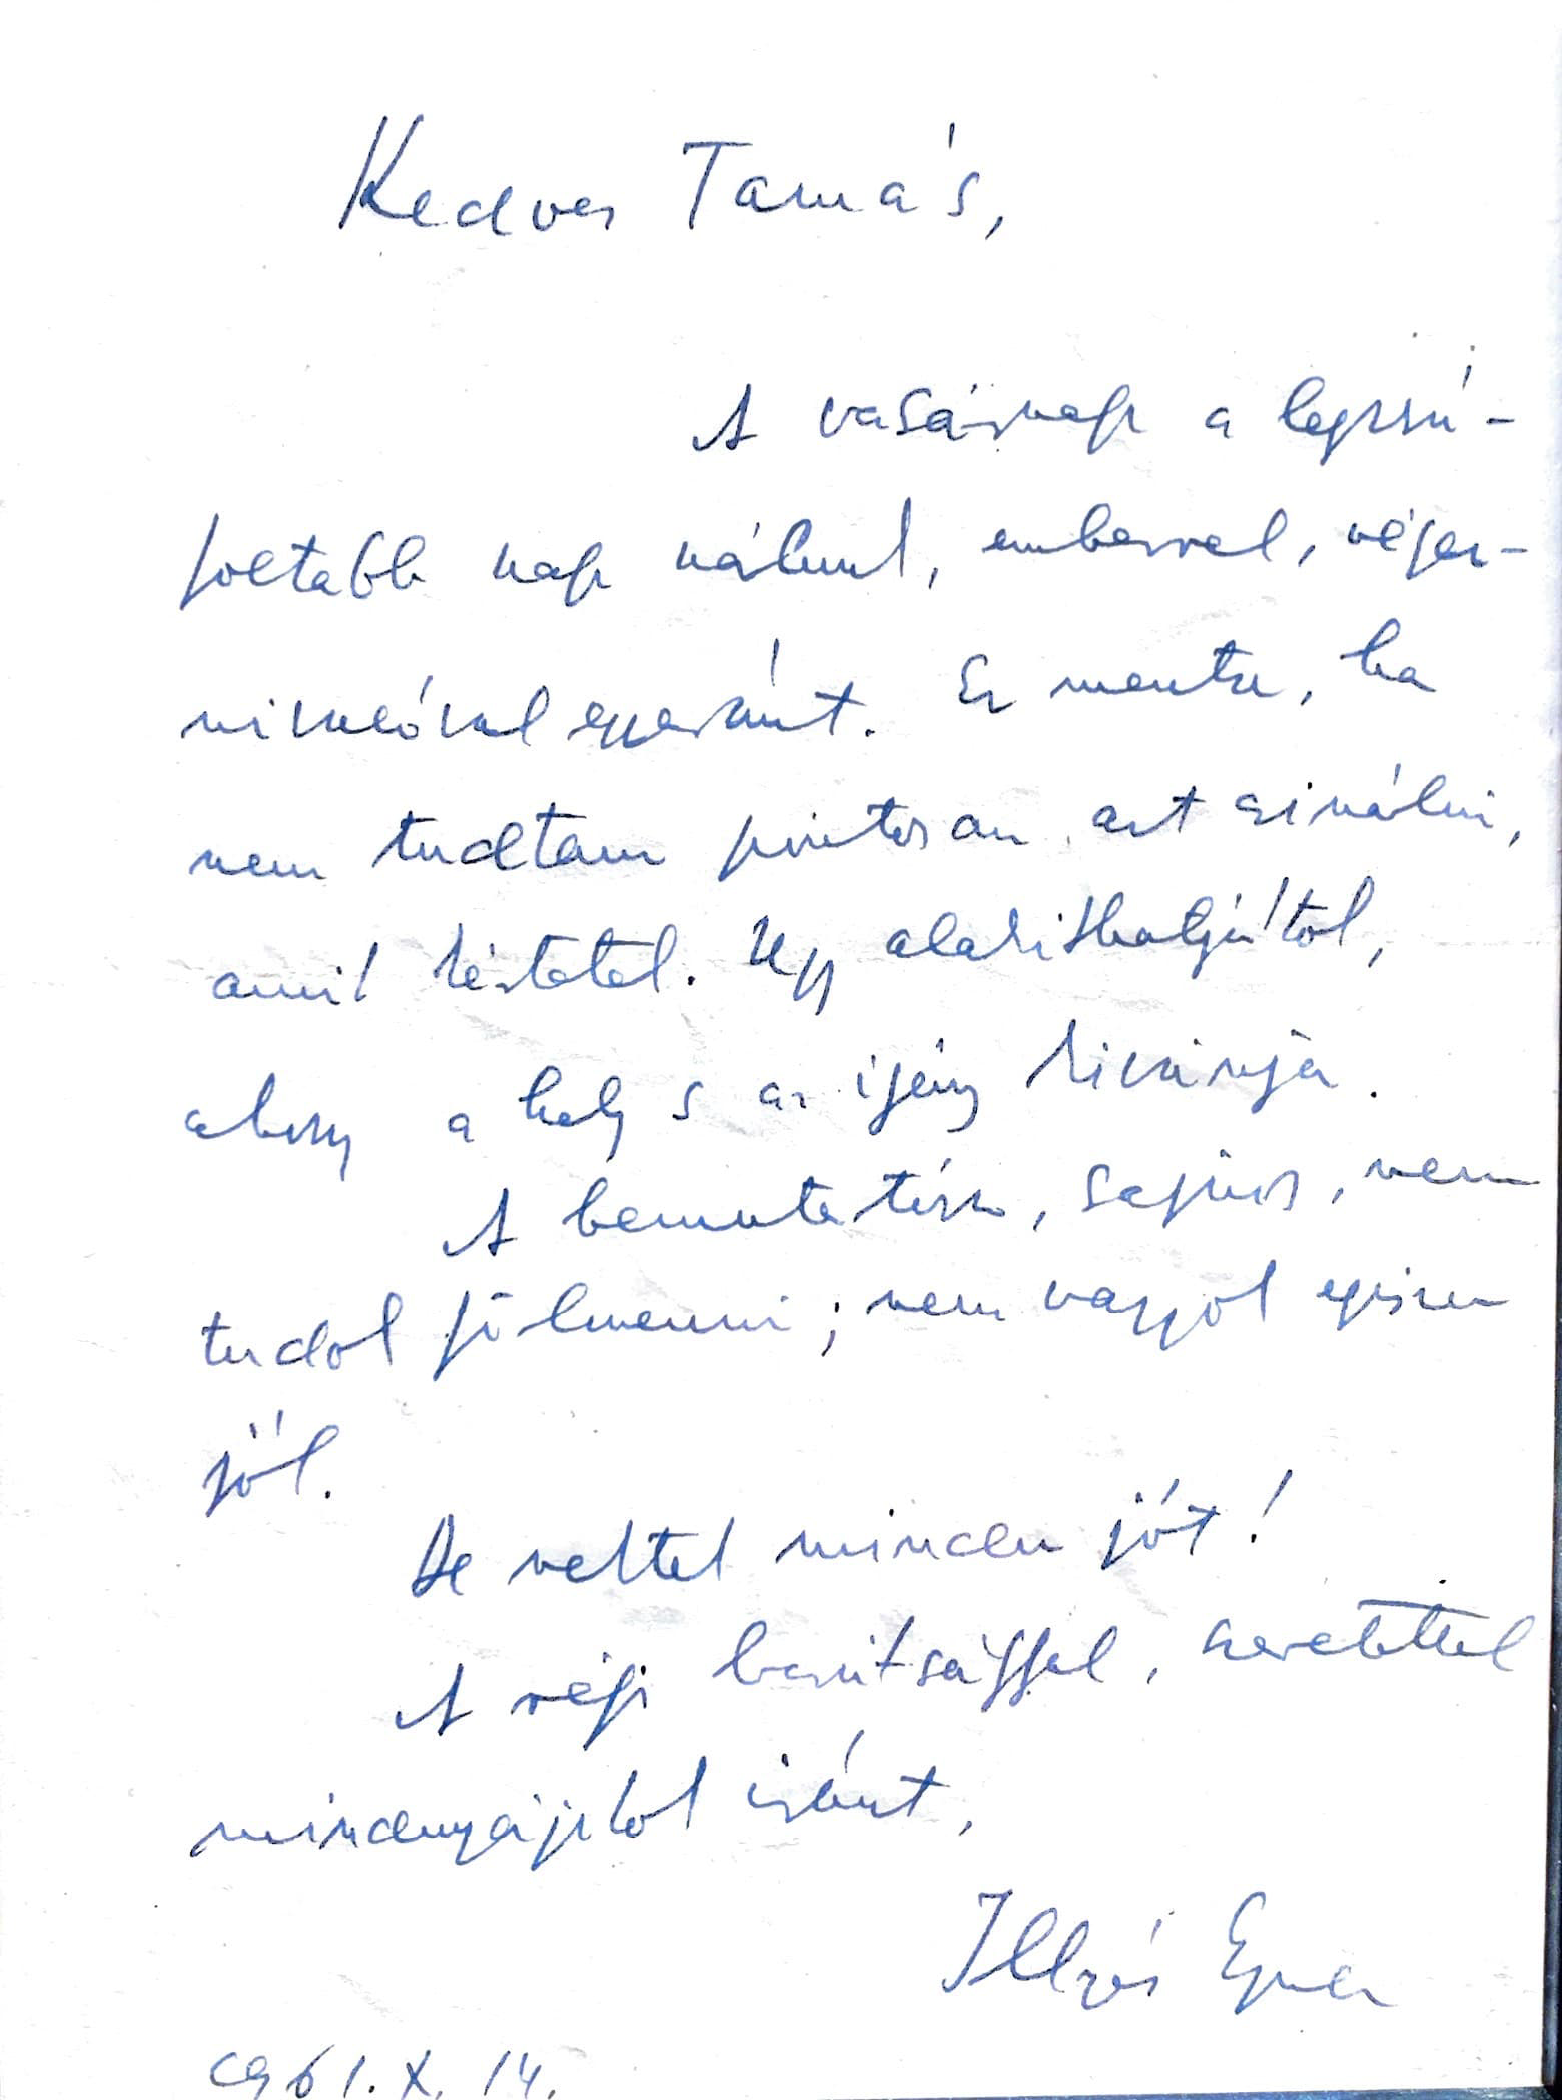 Kedves Tamás,
A vasárnap a legzsú-
foltabb nap nálunk, emberrel, véges-
nivalóval egyaránt. Ez mentse, ha
nem tudtam pontosan azt csinálni,
amit kértetek. Úgy alakíthatjátok,
ahogy a hely s az igény kivánja.
A bemutatásra, sajnos, nem
tudok fölmenni; nem vagyok egészen
jól.
De nektek minden jót!
A régi barátsággal, szeretettel
mindnyájatok iránt,
Illyés Gyula
1961. X. 14.